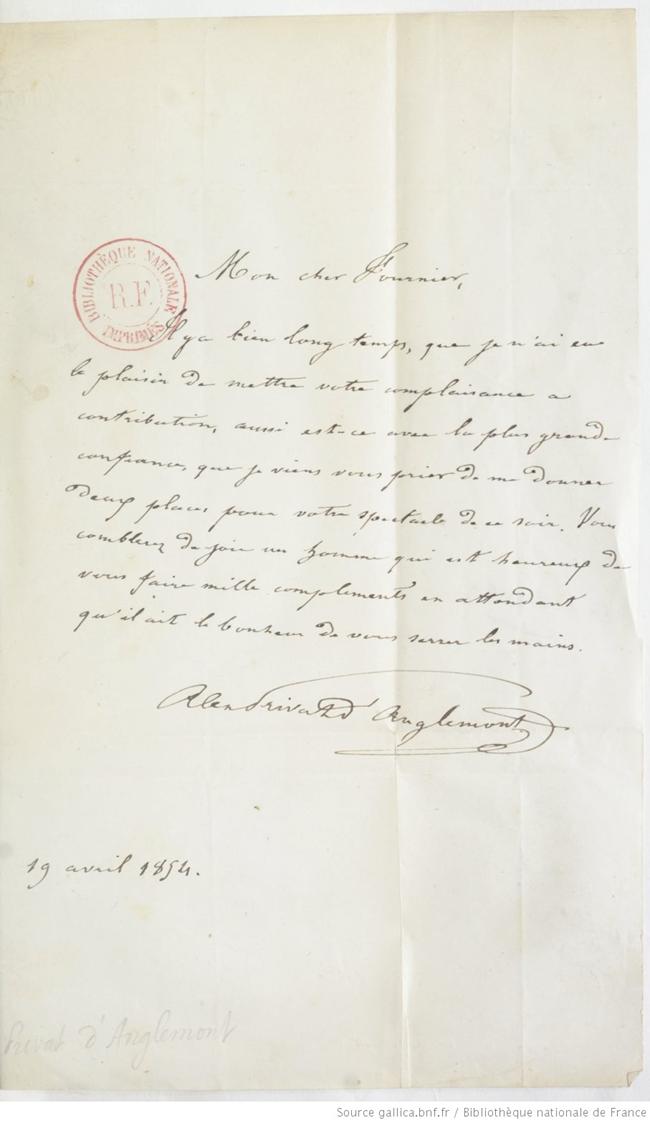 BIBLIOTHÈQUE NATIONALE
R.F.
IMPRIMÉS
Mon cher Fournier,
Il y a bien long temps, que je n'ai eu
le plaisir de mettre votre complaisance a
contribution, aussi est-ce avec la plus grande
confiance, que je viens vous prier de me donner
deux places pour votre spectacle de ce soir. Vous
comblerez de joie un homme qui est heureux de
vous faire mille complements en attendant
qu'il ait le bonheur de vous serrer les mains.
Alex Privat d'Anglemont
19 avril 1854.
Privat d'Anglemont
Source gallica.bnf.fr / Bibliothèque nationale de France